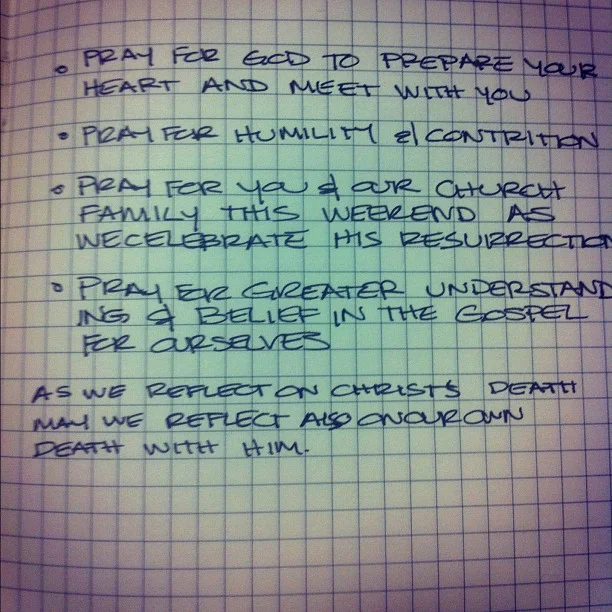 • PRAY FOR GOD TO PREPARE YOUR
HEART AND MEET WITH YOU
• PRAY FOR HUMILITY & CONTRITION
• PRAY FOR YOU & OUR CHURCH
FAMILY THIS WEEKEND AS
WE CELEBRATE HIS RESURRECTION
• PRAY FOR GREATER UNDERSTAND
ING & BELIEF IN THE GOSPEL
FOR OURSELVES
AS WE REFLECT ON CHRIST'S DEATH
MAY WE REFLECT ALSO ON OUR OWN
DEATH WITH HIM.